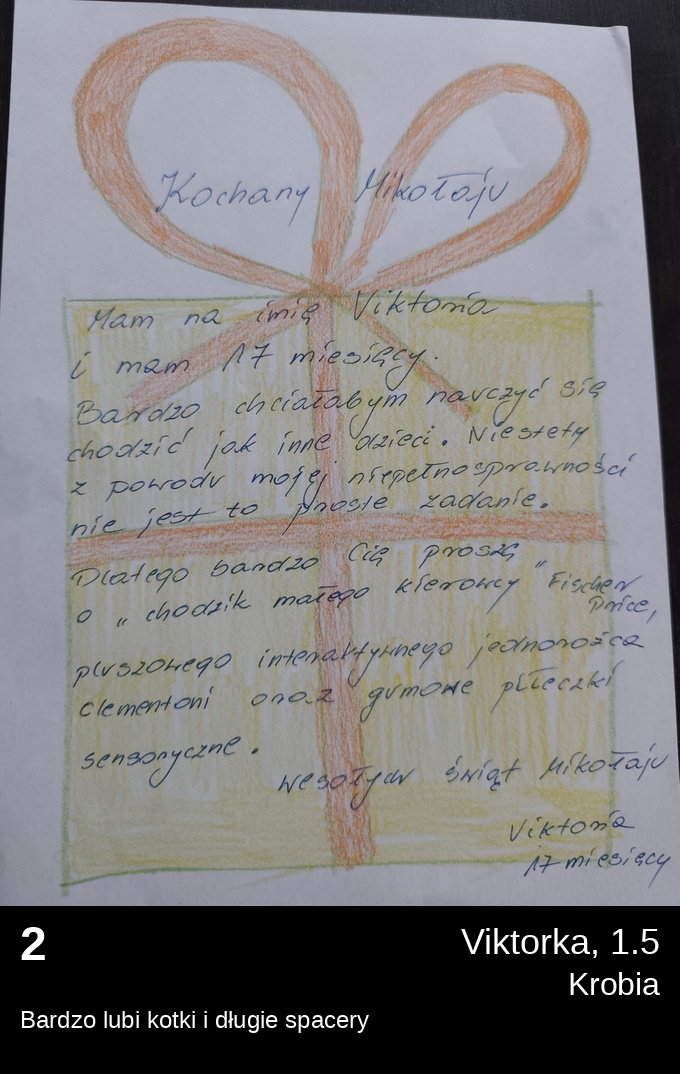 Kochany Mikołaju
Mam na imię Viktoria
i mam 17 miesięcy.
Bardzo chciałabym nauczyć się
chodzić jak inne dzieci. Niestety
z powodu mojej niepełnosprawności
nie jest to proste zadanie.
Dlatego bardzo Cię proszę
o „chodzik małego kierowcy" Fischer
Price,
pluszowego interaktywnego jednorożca
clementoni oraz gumowe piłeczki
sensoryczne.
Wesołych Świąt Mikołaju
Viktoria
17 miesięcy
2
Viktorka, 1.5
Krobia
Bardzo lubi kotki i długie spacery